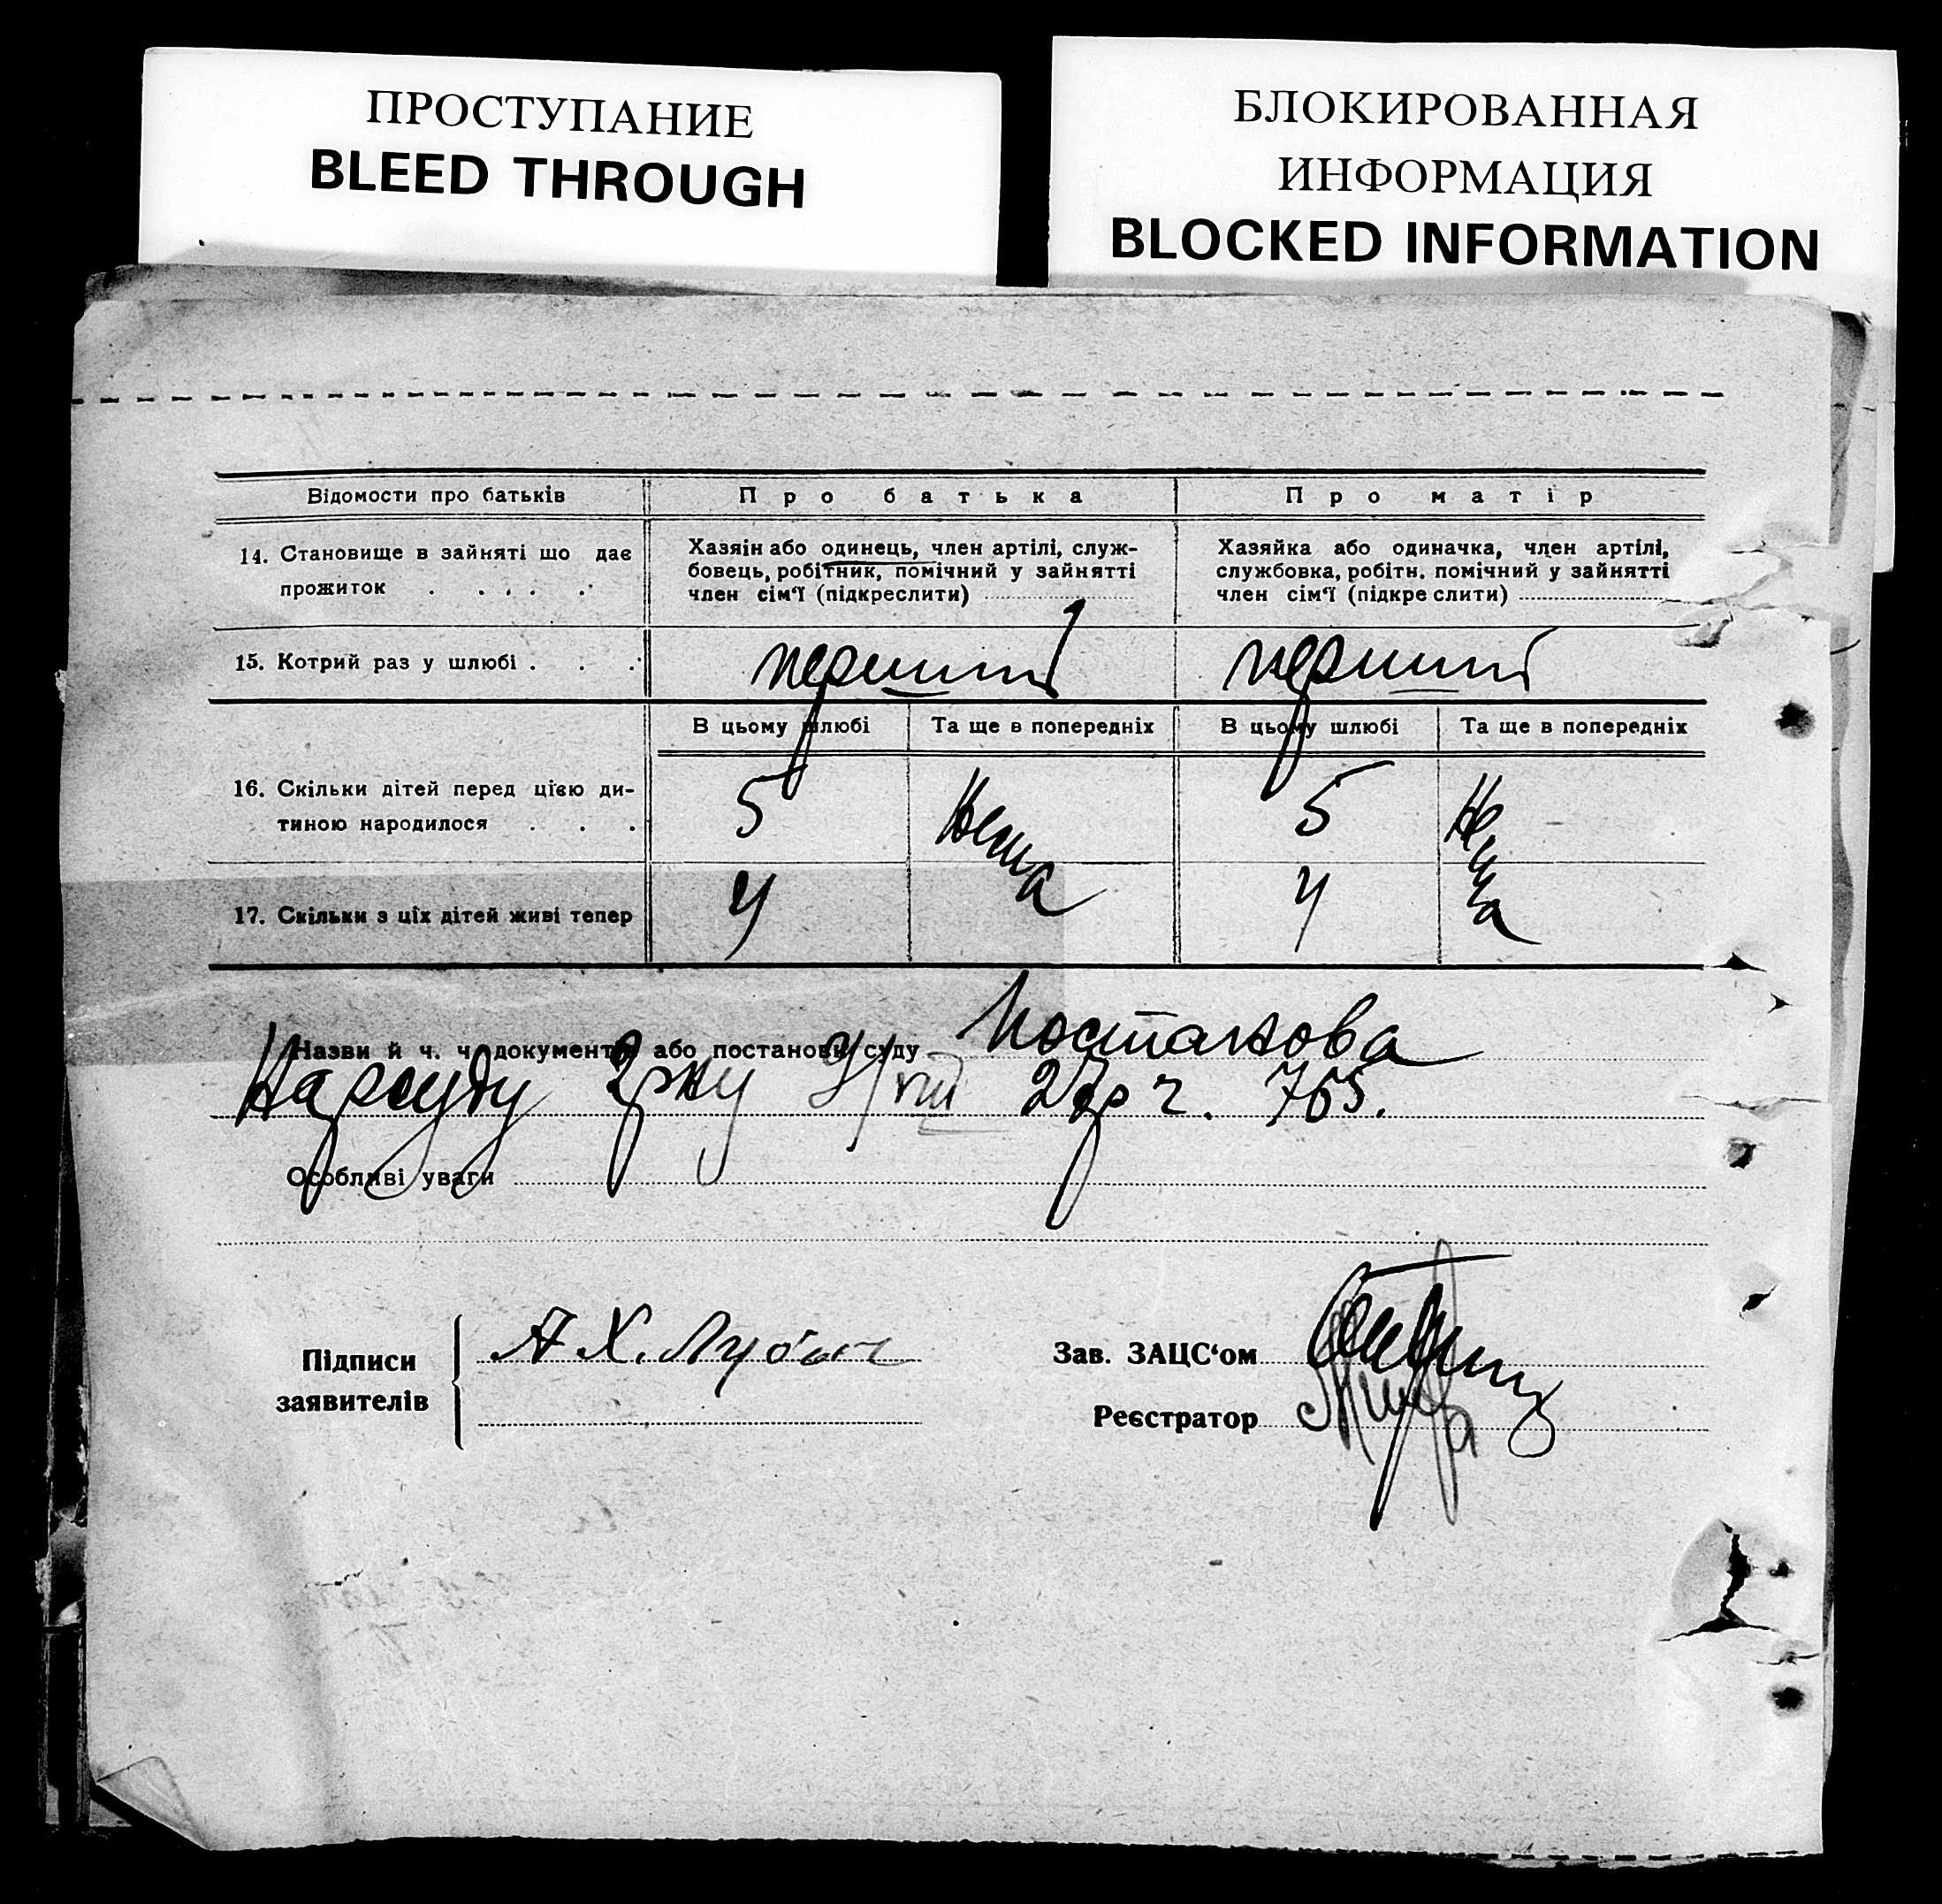 ПРОСТУПАНИЕ
BLEED THROUGH
БЛОКИРОВАННАЯ
ИНФОРМАЦИЯ
BLOCKED INFORMATION
Відомости про батьків
Про батька
Про матір
14. Становище в зайняті що дає
прожиток . . . . .
Хазяін або одинець, член артілі, служ-
бовець, робітник, помічний у зайнятті
член сім'ї (підкреслити)
Хазяйка або одиначка, член артілі,
службовка, робітн. помічний у зайнятті
член сім'ї (підкре слити)
15. Котрий раз у шлюбі . . .
перший
перший
В цьому шлюбі
Та ще в попередніх
В цьому шлюбі
Та ще в попередніх
16. Скільки дітей перед цією ди-
тиною народилося . . .
5
Нема
5
Нема
17. Скільки з ціх дітей живі тепер
4
4
Назви й ч. ч. документів або постанови суду Постанова
Нарсуду 2 рну 27р ч. 765.
Особливі уваги
Підписи
заявителів
А Х.
Зав. ЗАЦС'ом
Реєстратор